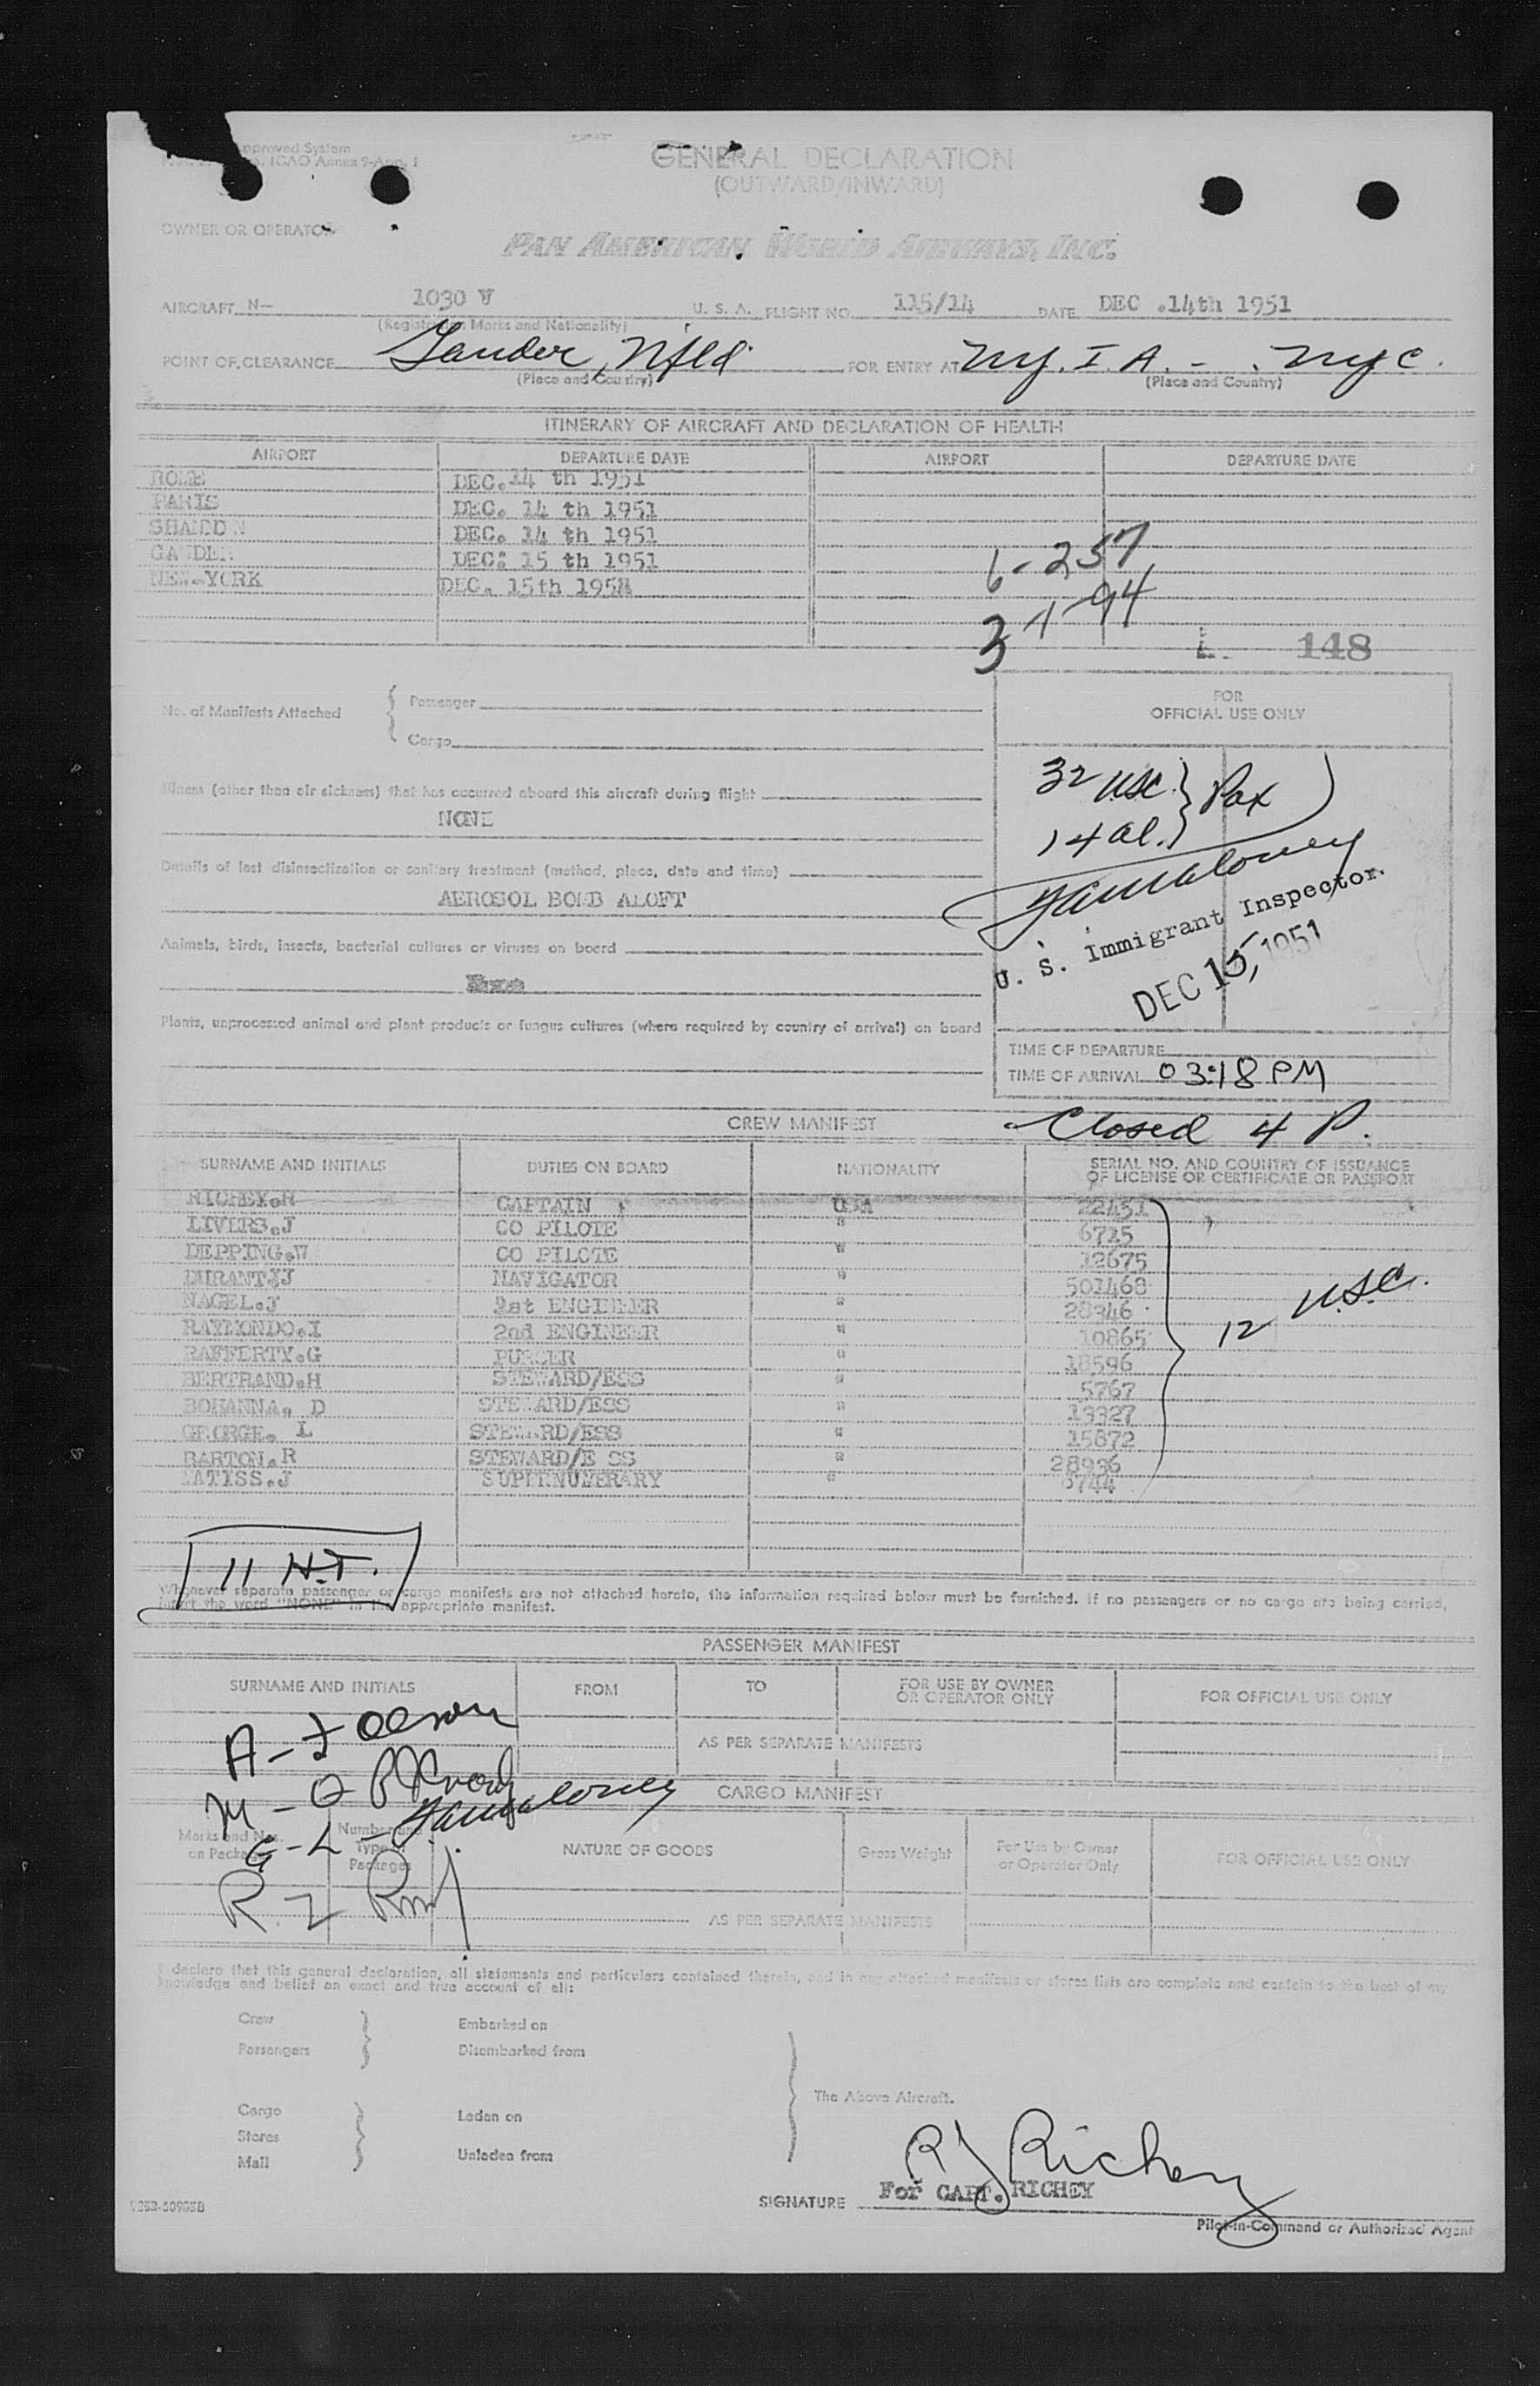 Approved System
ICAO Annex 9-App. 1
GENERAL DECLARATION
(OUTWARD/INWARD)
OWNER OR OPERATOR
PAN AMERICAN WORLD AIRWAYS, INC.
AIRCRAFT N— 1030 V U. S. A. FLIGHT NO. 115/14 DATE DEC .14th 1951
(Registration Marks and Nationality)
POINT OF CLEARANCE Gander, Nfld FOR ENTRY AT N.Y. I. A. - N.Y.C.
(Place and Country) (Place and Country)
ITINERARY OF AIRCRAFT AND DECLARATION OF HEALTH
AIRPORT DEPARTURE DATE AIRPORT DEPARTURE DATE
ROME DEC. 14 th 1951
PARIS DEC. 14 th 1951
SHANNON DEC. 14 th 1951
GANDER DEC: 15 th 1951
NEW-YORK DEC. 15th 195
6-257
3 1-94
L. 148
No. of Manifests Attached { Passenger
Cargo
FOR
OFFICIAL USE ONLY
32 USC. } Pax
14 al.
U. S. Immigrant Inspector.
DEC 15, 1951
Illness (other than air sickness) that has occurred aboard this aircraft during flight
NONE
Details of last disinsectization or sanitary treatment (method, place, date and time)
AEROSOL BOMB ALOFT
Animals, birds, insects, bacterial cultures or viruses on board
None
Plants, unprocessed animal and plant products or fungus cultures (where required by country of arrival) on board
TIME OF DEPARTURE
TIME OF ARRIVAL 03:18 PM
Closed 4 P.
CREW MANIFEST
SURNAME AND INITIALS DUTIES ON BOARD NATIONALITY SERIAL NO. AND COUNTRY OF ISSUANCE
OF LICENSE OR CERTIFICATE OR PASSPORT
RICHEY.R CAPTAIN USA 22451
LIVERS.J CO PILOTE " 6725
DEPPING.W CO PILOTE " 12675
DURANT.J NAVIGATOR " 501468
NAGEL.J 1st ENGINEER " 28346
RAYMONDO.I 2nd ENGINEER " 10865
RAFFERTY.G PURSER " 18596
BERTRAND.H STEWARD/ESS " 5767
BOHANNA. D STEWARD/ESS " 13327
GEORGE. L STEWARD/ESS " 15872
BARTON.R STEWARD/E SS " 28936
MATISS.J SUPERNUMERARY " 6744
12 U.S.C.
11 H.T.
Whenever separate passenger or cargo manifests are not attached hereto, the information required below must be furnished. If no passengers or no cargo are being carried,
insert the word "NONE" in the appropriate manifest.
PASSENGER MANIFEST
SURNAME AND INITIALS FROM TO FOR USE BY OWNER
OR OPERATOR ONLY FOR OFFICIAL USE ONLY
AS PER SEPARATE MANIFESTS
CARGO MANIFEST
Marks and Nos.
on Packages Number and
Type of
Packages NATURE OF GOODS Gross Weight For Use by Owner
or Operator Only FOR OFFICIAL USE ONLY
AS PER SEPARATE MANIFESTS
I declare that this general declaration, all statements and particulars contained therein, and in any attached manifests or stores lists are complete and contain to the best of my
knowledge and belief an exact and true account of all:
Crew Embarked on
Passengers Disembarked from
The Above Aircraft.
Cargo Laden on
Stores
Mail Unladen from
R J Richey
For CAPT. RICHEY
SIGNATURE
Pilot-in-Command or Authorized Agent